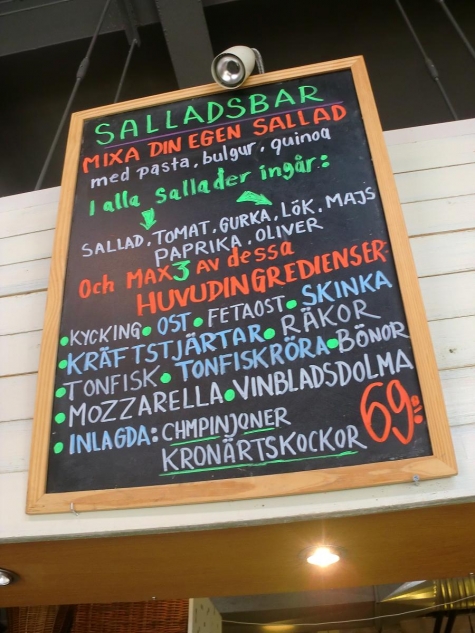 SALLADSBAR
MIXA DIN EGEN SALLAD
med pasta, bulgur, quinoa
I alla Sallader ingår:
SALLAD, TOMAT, GURKA, LÖK, MAJS
PAPRIKA, OLIVER
Och MAX 3 AV dessa
HUVUDINGREDIENSER
• KYCKING • OST • FETAOST • SKINKA
• KRÄFTSTJÄRTAR • RÄKOR
• TONFISK • TONFISKRÖRA • BÖNOR
• MOZZARELLA • VINBLADSDOLMA
• INLAGDA: CHMPINJONER
KRONÄRTSKOCKOR
69:-